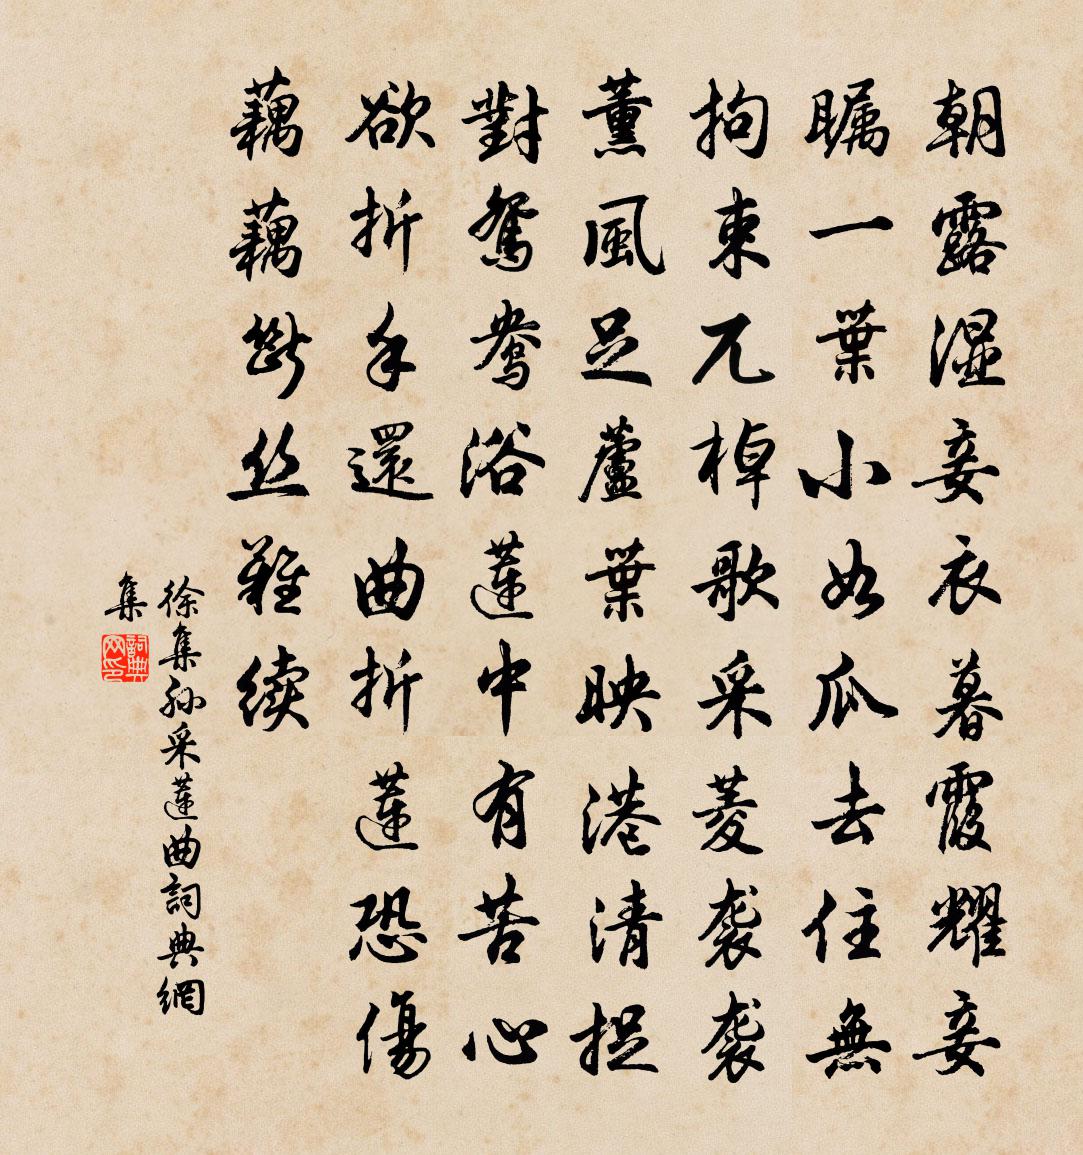 朝露湿妾衣暮霞耀妾
瞩一葉小如瓜去住無
拘束兀棹歌采菱袭袭
薰風足蘆葉映港清捉
對鴛鴦浴蓮中有苦心
欲折手還曲折蓮恐傷
藕藕斷丝難续
徐集孙采蓮曲詞典網
集
詞典网印